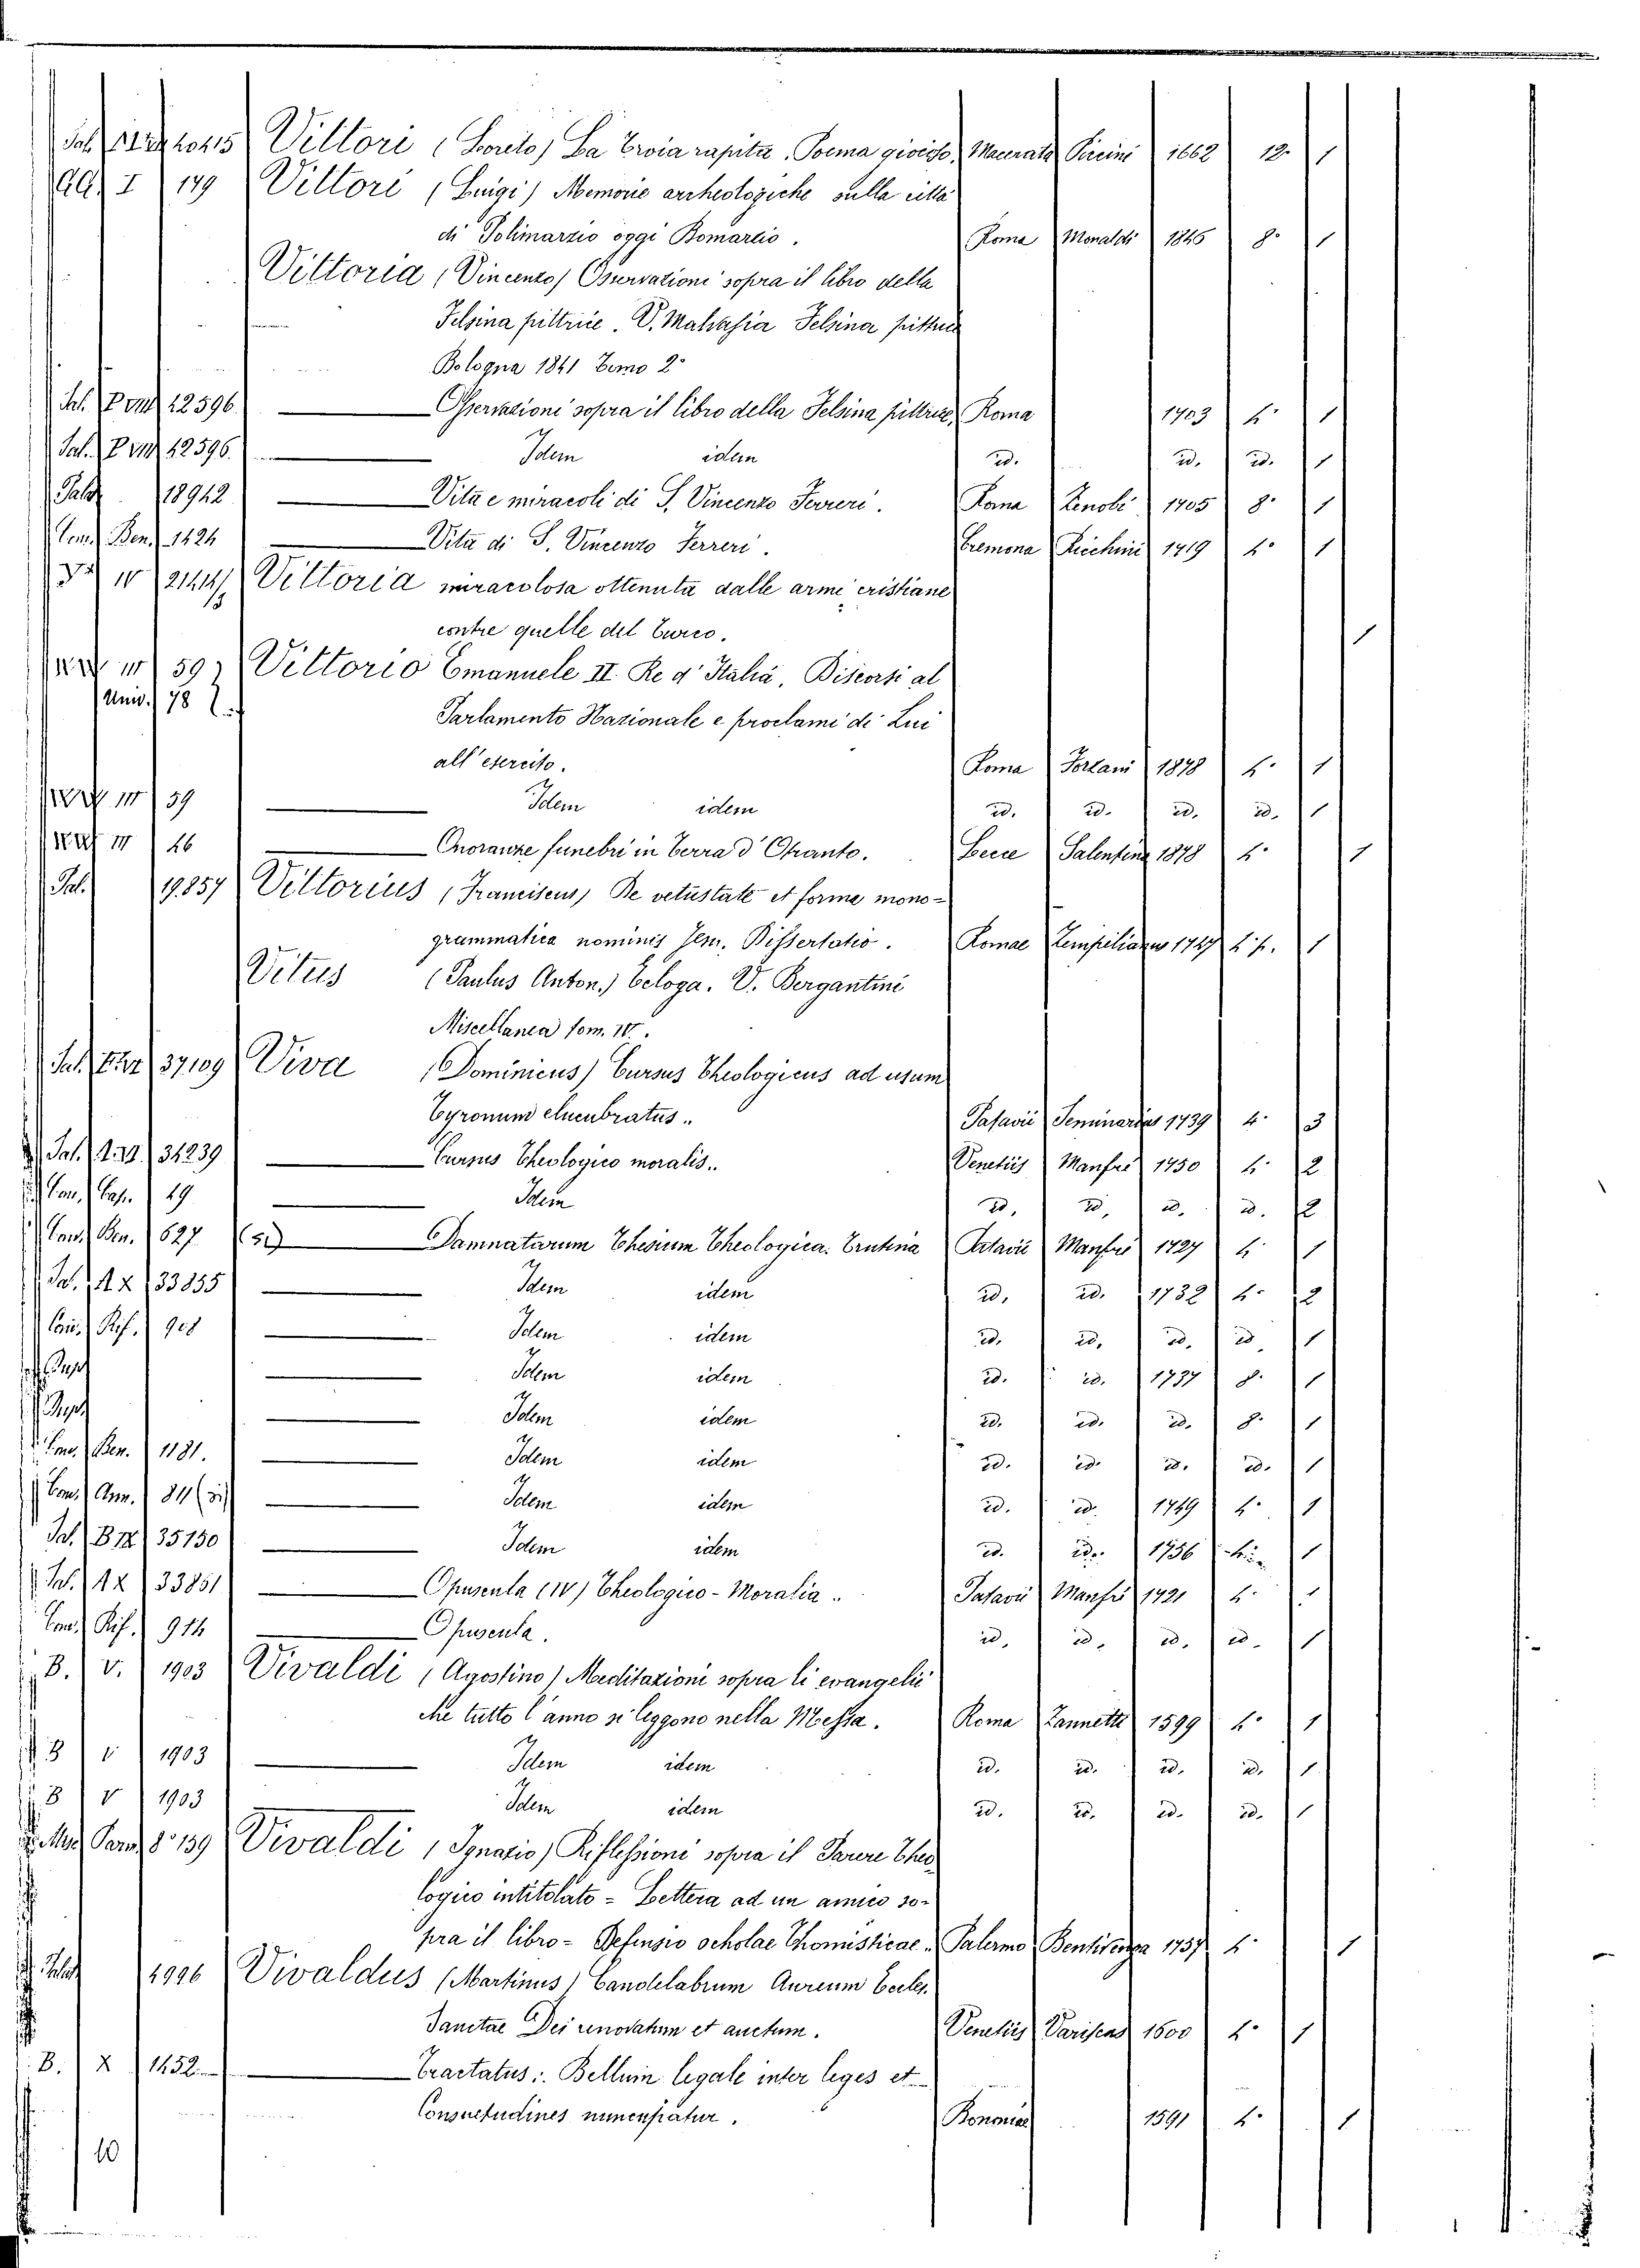 Vittori (Loreto) La Troia rapita, Poema giocoso, Macerata Piccini 1662 12° 1
I 149 Vittori (Luigi) Memorie archeologiche sulla città
di Polimarzio oggi Bomarzio. Roma Monaldi 1846 8° 1
Vittoria (Vincenzo) Osservazioni sopra il libro della
Felsina pittrice. V. Malvasia Felsina pittrice
Bologna 1841 Tomo 2°
Sal. 12596. Osservazioni sopra il libro della Felsina pittrice, Roma 1703 4° 1
Sal. 12596. Idem idem id. id. id. 1
18942 Vita e miracoli di S. Vincenzo Ferreri. Roma Zenobi 1705 8° 1
Con. Ben. 1424 Vita di S. Vincenzo Ferreri. Cremona Ricchini 1719 4° 1
Vittoria miracolosa ottenuta dalle armi cristiane
contre quelle del Turco. 1
59 Vittorio Emanuele II. Re d'Italia, Discorsi al
Univ. 78 Parlamento Nazionale e proclami di Lui
all'esercito. Roma Forzani 1878 4° 1
59 Idem idem id. id. id. id. 1
46 Onoranze funebri in Terra d'Otranto. Lecce Salentina 1878 4° 1
Sal. 19857 Vittorius (Franciscus) De vetustate et forma mono-
grammatica nominis Jesu, Dissertatio. Romae Zempelianus 1747 1
Vitus (Paulus Anton.) Ecloga. V. Bergantini
Miscellanea tom. IV.
37109 Viva (Dominicus) Cursus Theologicus ad usum
Tyronum elucubratus. Patavii Seminarius 1739 4° 3
Sal. 34239 Cursus Theologico moralis. Venetiis Manfrè 1750 4° 2
Con. Cap. 49 Idem id. id. id. id. 2
Con. Ben. 627 Damnatarum Thesium Theologica. Trutina Patavii Manfrè 1727 4° 1
Sal. 33855 Idem idem id. id. 1732 4° 2
Con. Rif. 908 Idem idem id. id. id. id. 1
Idem idem id. id. 1737 8° 1
Idem idem id. id. id. 8° 1
Con. Ben. 1181. Idem idem id. id. id. id. 1
Con. Ann. 84 Idem idem id. id. 1749 4° 1
Sal. 35150 Idem idem id. id. 1756 1
Sal. 33851 Opuscula (IV) Theologico-Moralia. Patavii Manfrè 1721 4° 1
Con. Rif. 914 Opuscula. id. id. id. id. 1
B. V. 1903 Vivaldi (Agostino) Meditazioni sopra li evangelii
che tutto l'anno si leggono nella Messa. Roma Zannetti 1599 4° 1
B V 1903 Idem idem id. id. id. id. 1
B V 1903 Idem idem id. id. id. id. 1
139 Vivaldi (Ignazio) Riflessioni sopra il Parere Theo
logico intitolato = Lettera ad un amico so-
pra il libro = Defensio scholae Thomisticae. Palermo Bentivenga 1737 4° 1
4996 Vivaldus (Martinus) Candelabrum Aureum Eccles.
Sanctae Dei renovatum et auctum. Venetiis Variscus 1600 4° 1
B. X 1452 Tractatus: Bellum legale inter leges et
Consuetudines nuncupatur. Bononiae 1591 4° 1
10